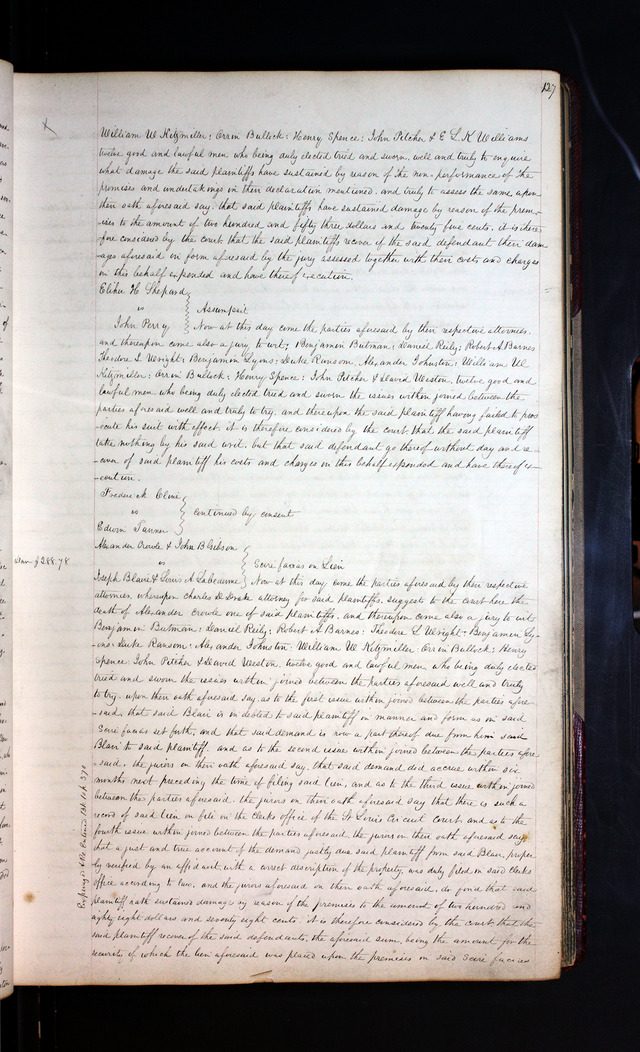 127
William W Kitzmiller; Orrin Bullock; Henry Spence; John Pitcher & E L K Williams
twelve good and lawful men, who being duly elected tried and sworn, well and truly to enquire
what damage the said plaintiffs have sustained by reason of the non-performance of the
promises and undertakings in their declaration mentioned, and truly to assess the same, upon
their oath aforesaid say, that said plaintiffs have sustained damage by reason of the prem-
ises to the amount of two hundred and fifty three dollars and twenty five cents, it is there-
fore considered by the court that the said plaintiffs recover of the said defendant their dam
ages aforesaid in form aforesaid by the jury assessed together with their costs and charges
in this behalf expended and have thereof execution.
Elihu H Shepard
vs } Assumpsit
John Perry } Now at this day come the parties aforesaid by their respective attornies.
and thereupon come also a jury to wit; Benjamin Butman; Daniel Reily; Robert A Barnes
Theodore L Wright; Benjamin Lyons; Duke Ransom, Alexander Johnston; William W
Kitzmiller; Orrin Bullock; Henry Spence; John Pitcher & David Weston, twelve good and
lawful men who being duly elected tried and sworn the issues within joined between the
parties aforesaid well and truly to try, and thereupon the said plaintiff having failed to pros
ecute his suit with effect, it is therefore considered by the court, that the said plaintiff
take nothing by his said writ, but that said defendant go thereof without day and re-
-cover of said plaintiff his costs and charges in this behalf expended and have thereof ex-
-ecution.
Frederick Cline
vs } continued by consent
Edwin Tanner
Alexander Crowle & John B Gibson
vs } Scire facias on Lien
$288.78
Joseph Blain & Louis A Labeaume } Now at this day come the parties aforesaid by their respective
attornies, whereupon Charles D Drake attorney for said plaintiffs, suggests to the court here the
death of Alexander Crowle one of said plaintiffs, and thereupon come also a jury to wit
Benjamin Butman; Daniel Reily; Robert A Barnes; Theodore L Wright; Benjamin Ly-
ons; Duke Ransom; Alexander Johnston; William W Kitzmiller; Orrin Bullock; Henry
Spence; John Pitcher & David Weston, twelve good and lawful men, who being duly elected
tried and sworn the issues within joined between the parties aforesaid well and truly
to try, upon their oath aforesaid say, as to the first issue within joined between the parties afore
-said, that said Blain is indebted to said plaintiff in manner and form as in said
Scire facias set forth, and that said demand is now a part thereof due from him said
Blain to said plaintiff, and as to the second issue within joined between the parties afore
-said, the jurors on their oath aforesaid say, that said demand did accrue within six
months next preceding the time of filing said lien, and as to the third issue within joined
between the parties aforesaid, the jurors on their oath aforesaid say that there is such a
record of said lien on file in the Clerks office of the St Louis Circuit Court, and as to the
fourth issue within joined between the parties aforesaid, the jurors on their oath aforesaid say
that a just and true account of the demand justly due said plaintiff from said Blain, proper
ly verified by an affidavit, with a correct description of the property, was duly filed in said clerks
office according to law, and the jurors aforesaid on their oath aforesaid, do find that said
plaintiff hath sustained damages by reason of the premises to the amount of two hundred and
eighty eight dollars and seventy eight cents, it is therefore considered by the court, that the
said plaintiff recover of the said defendants, the aforesaid sum, being the amount for the
security of which the lien aforesaid was placed upon the premises in said Scire facias